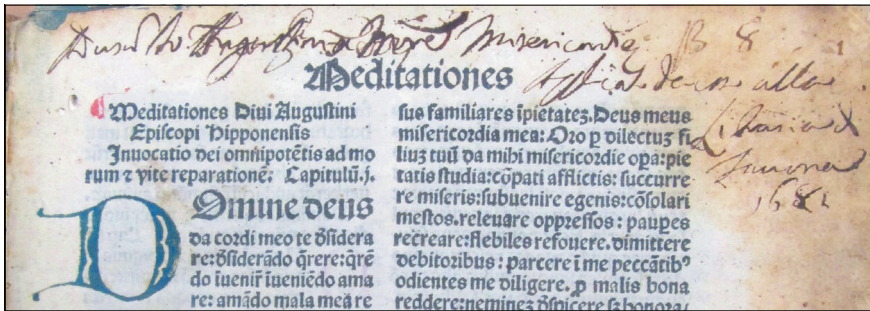 Misericordie B 8 1
Meditationes
alla
1681
Meditationes Diui Augustini
Episcopi Hipponensis
Inuocatio dei omnipotētis ad mo
rum ⁊ vite reparationē: Capitulū.j.
Domine deus
da cordi meo te ꝺ̄sidera
re: ꝺ̄siderādo q̄rere: q̄rē
do īuenir̄ īueniēdo ama
re: amādo mala mea re
sus familiares īpietateꝫ. Deus meus
misericordia mea: Oro ꝑ dilectuꝫ fi
liuꝫ tuū da mihi misericordie oꝑa: pie
tatis studia: cōpati afflictis: succurre
re miseris: subuenire egenis: cōsolari
mestos. releuare oppressos: pauꝑes
recreare: flebiles refouere. dimittere
debitoribus: parcere ī me peccātibꝰ
odientes me diligere. ꝓ malis bona
reddere: nemineꝫ ꝺ̄spicere sꝫ honora/